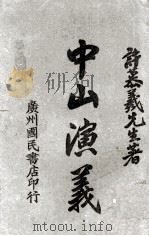 許慕義先生著
中山演義
廣州國民書店印行